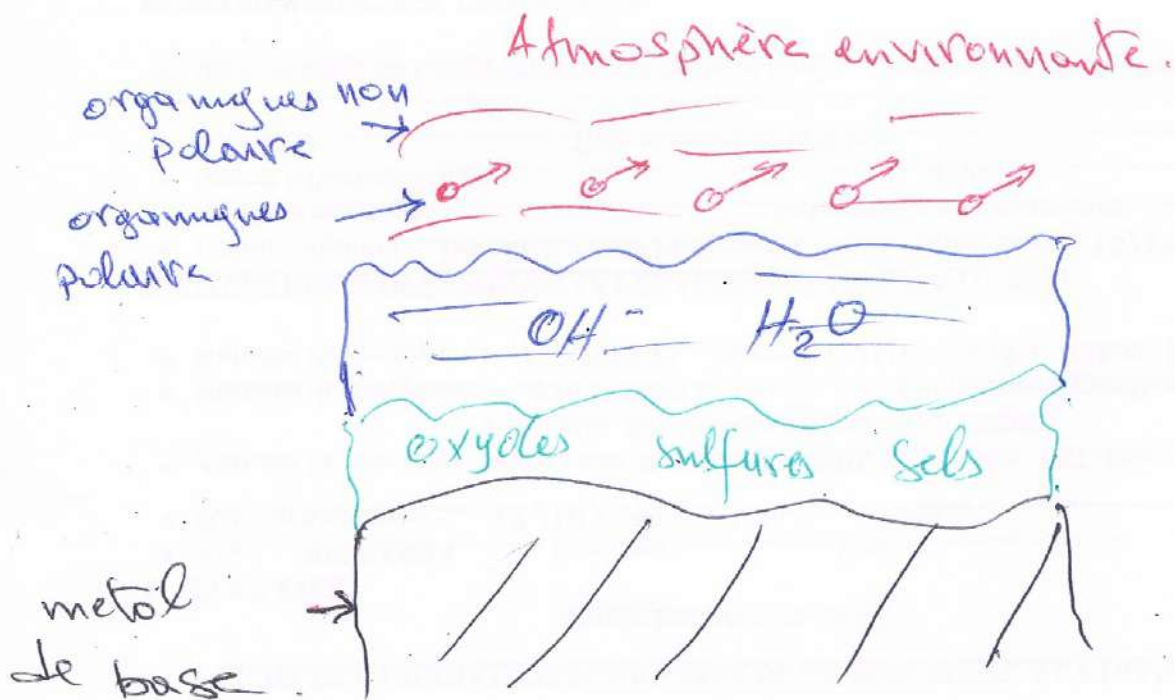 Atmosphère environnante.
organiques non
polaire
organiques
polaire
OH⁻ H₂O
oxydes sulfures sels
metal
de base.